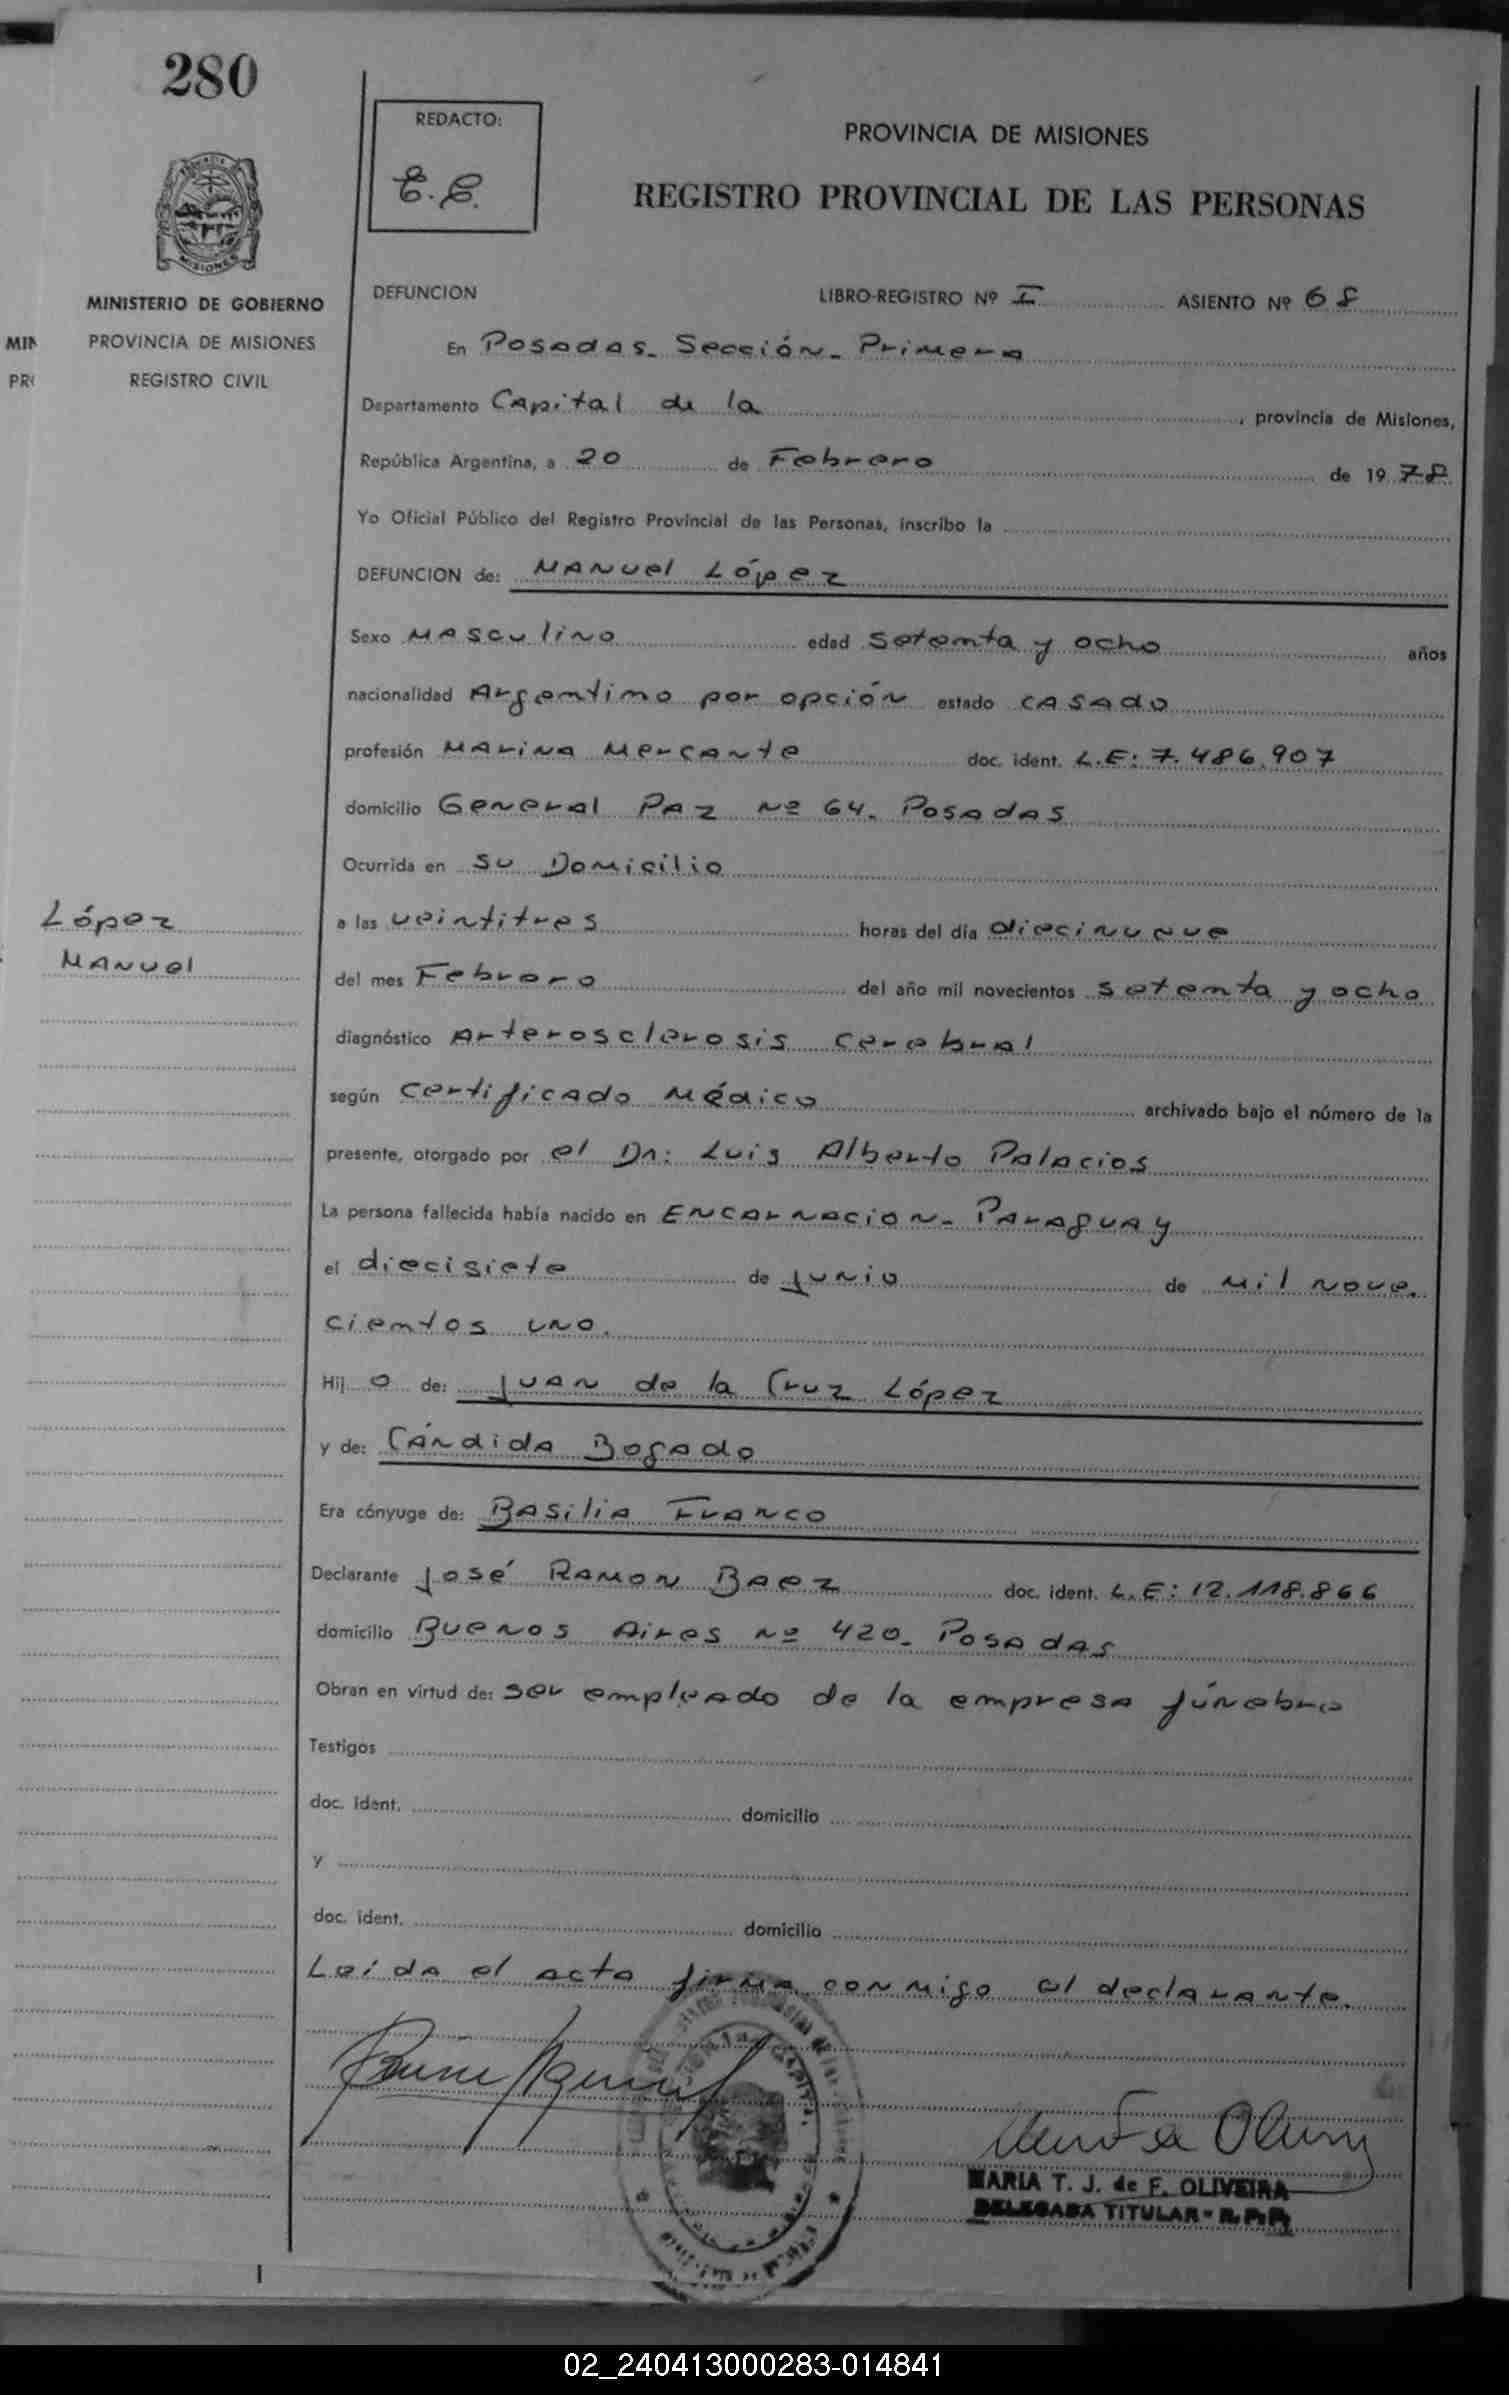 280
REDACTO:
E.C.
PROVINCIA DE MISIONES
REGISTRO PROVINCIAL DE LAS PERSONAS
MISIONES
MINISTERIO DE GOBIERNO
PROVINCIA DE MISIONES
REGISTRO CIVIL
MIN
PR
DEFUNCION LIBRO-REGISTRO Nº I ASIENTO Nº 68
En Posadas. Sección. Primera
Departamento Capital de la , provincia de Misiones,
República Argentina, a 20 de Febrero de 19 78
Yo Oficial Público del Registro Provincial de las Personas, inscribo la
DEFUNCION de: Manuel López
Sexo Masculino edad Setenta y ocho años
nacionalidad Argentino por opción estado casado
profesión Marina Mercante doc. ident. L.E: 7.486.907
domicilio General Paz Nº 64. Posadas
Ocurrida en su Domicilio
López
Manuel
a las veintitres horas del día diecinueve
del mes Febrero del año mil novecientos setenta y ocho
diagnóstico Arterosclerosis cerebral
según certificado Médico archivado bajo el número de la
presente, otorgado por el Dr: Luis Alberto Palacios
La persona fallecida había nacido en Encarnacion. Paraguay
el diecisiete de junio de mil nove.
cientos uno.
Hij o de: Juan de la Cruz López
y de: Cándida Bogado
Era cónyuge de: Basilia Franco
Declarante José Ramon Baez doc. ident. L.E: 12.118.866
domicilio Buenos Aires Nº 420. Posadas
Obran en virtud de: ser empleado de la empresa fúnebre
Testigos
doc. ident. domicilio
y
doc. ident. domicilio
Leida el acta firma conmigo el declarante.
MARIA T. J. de F. OLIVEIRA
DELEGADA TITULAR - R.P.P.
02_240413000283-014841